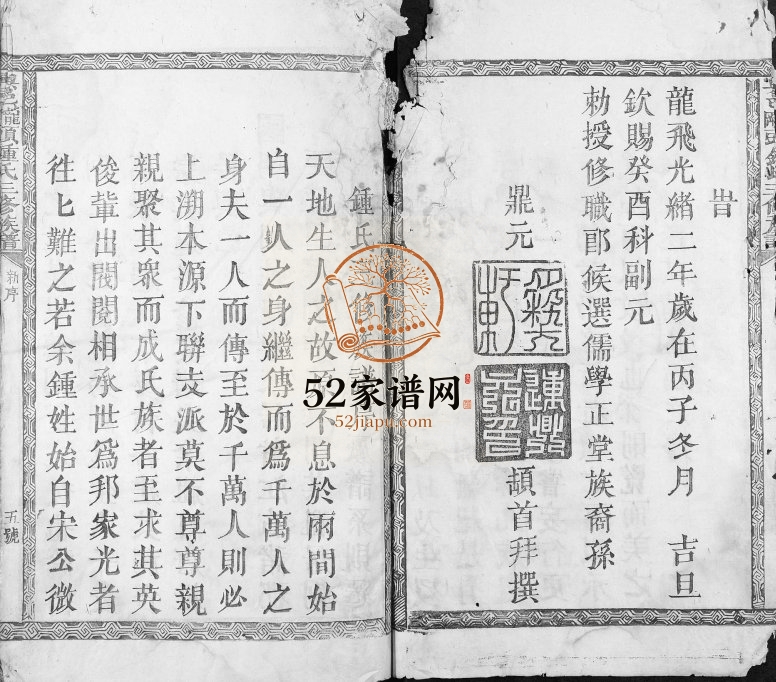 旹
龍飛光緒二年歲在丙子冬月 吉旦
欽賜癸酉科副元
勅授修職郎候選儒學正堂族裔孫
鼎元 頓首拜撰
鍾氏 修族譜
天地生人之故 不息於兩間始
自一人之身繼傳而爲千萬人之
身夫一人而傳至於千萬人則必
上溯本源下聯支派莫不尊尊親
親聚其衆而成氏族者至求其英
俊輩出閥閱相承世爲邦家光者
徃匕難之若余鍾姓始自宋公微
鍾氏三修族譜
新序
五號
52家谱网
52jiapu.com